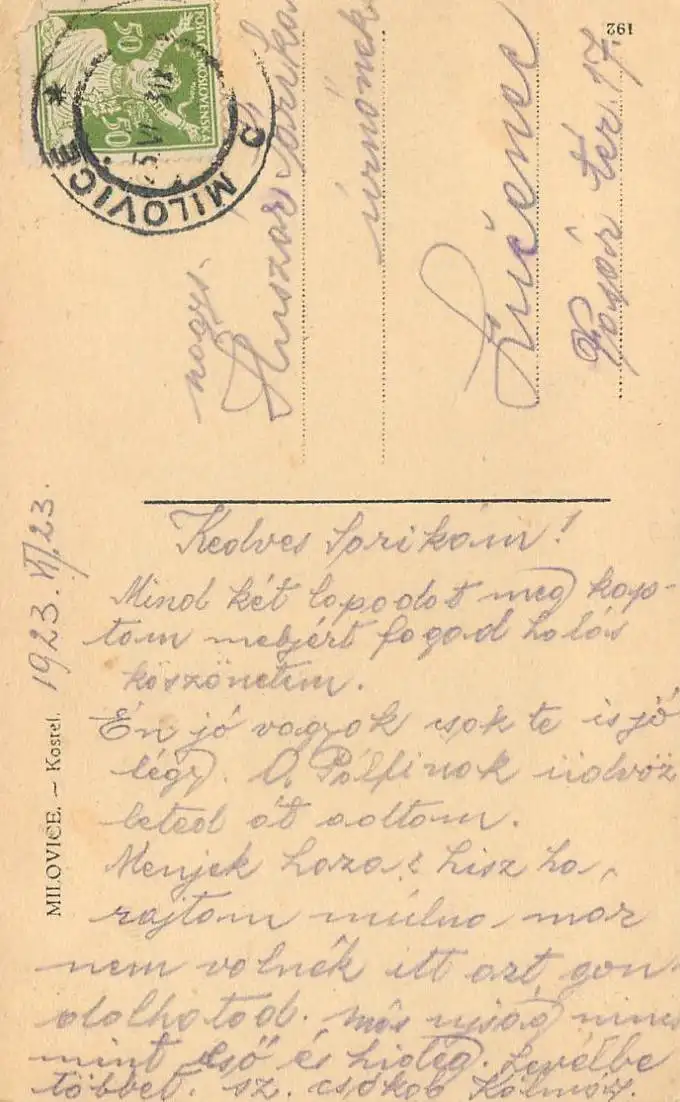 192
POŠTA ČESKOSLOVENSKÁ
50 50
MILOVICE
Č
nags.
Huszár Sárika
úrnőnek
Lučenec
Vásár tér. 17.
1923. VI/23.
MILOVICE. — Kostel.
Kedves Sárikám!
Mind két lapodat meg kap-
tam melyért fogad hálás
köszönetem.
Én jó vagyok csak te is jó
légy. A Pálfinak üdvöz
leted át adtam.
Menjek haza? hisz ha
rajtam múlna mar
nem volnék itt azt gon
dolhatod. más ujság nincs
mint eső és hideg. Levélbe
többet. sz. csókol Kálmán.